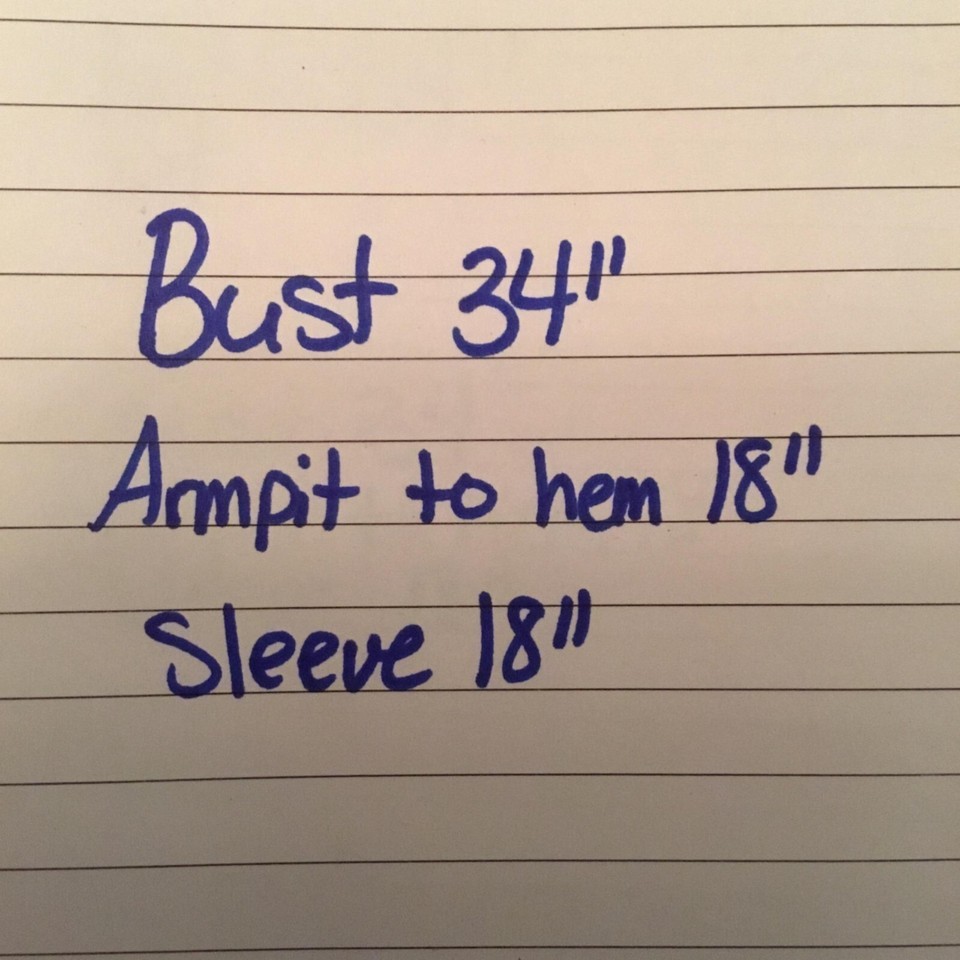 Bust 34"
Armpit to hem 18"
Sleeve 18"